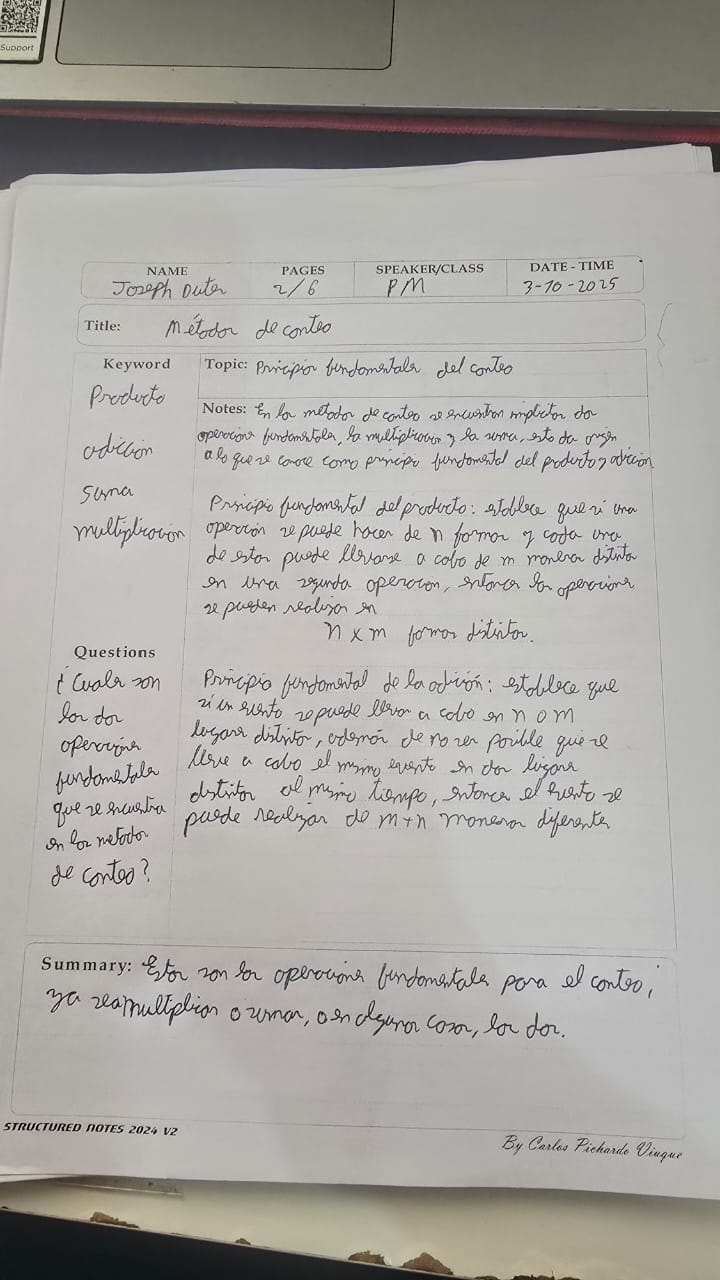 Support
NAME PAGES SPEAKER/CLASS DATE - TIME
Joseph Duter 2/6 PM 3-10-2025
Title: Métodos de conteo
Keyword
Producto
adición
suma
multiplicación
Topic: Principios fundamentales del conteo
Notes: En los métodos de conteo se encuentran implícitos dos
operaciones fundamentales, la multiplicación y la suma, esto da origen
a lo que se conoce como principio fundamental del producto y adición
Principio fundamental del producto: establece que si una
operación se puede hacer de n formas y cada una
de estas puede llevarse a cabo de m maneras distintas
en una segunda operación, entonces las operaciones
se pueden realizar en
n x m formas distintas.
Principio fundamental de la adición: establece que
si un evento se puede llevar a cabo en n o m
lugares distintos, además de no ser posible que se
lleve a cabo el mismo evento en dos lugares
distintos al mismo tiempo, entonces el evento se
puede realizar de m+n maneras diferentes
Questions
¿Cuales son
las dos
operaciones
fundamentales
que se encuentra
en los metodos
de conteo?
Summary: Estas son las operaciones fundamentales para el conteo,
ya sea multiplicar o sumar, o en algunos casos, las dos.
STRUCTURED NOTES 2024 V2
By Carlos Pichardo Viuque